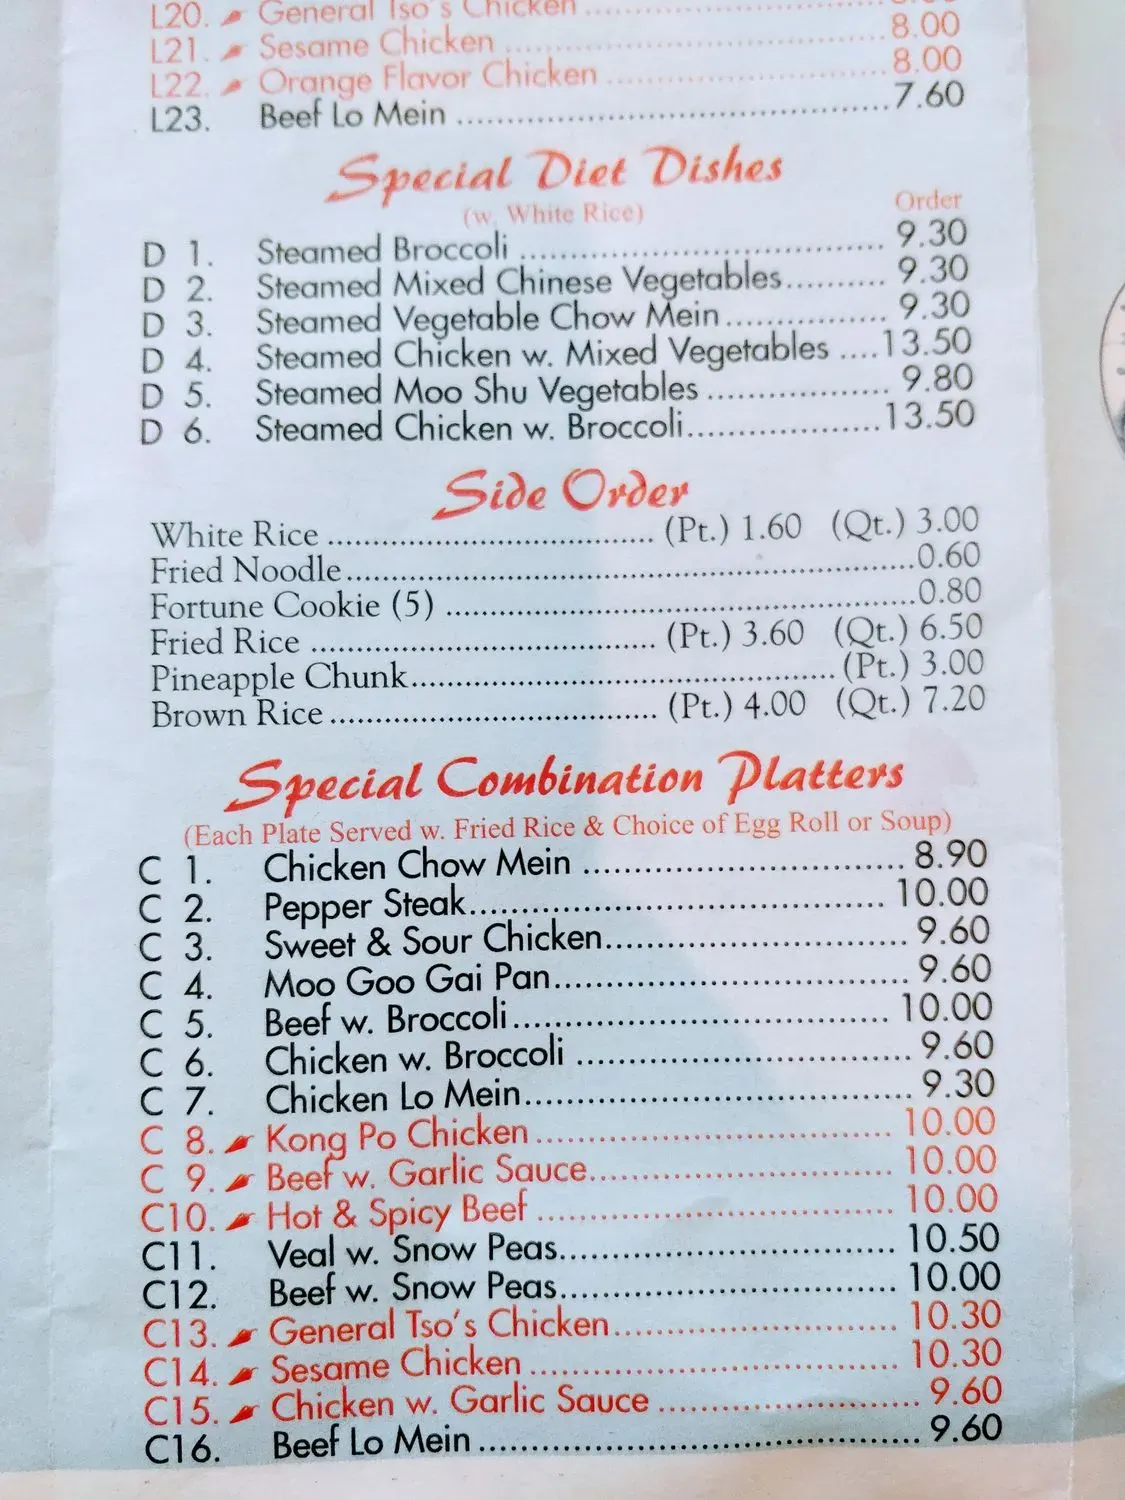 L20. General Tso's Chicken
L21. Sesame Chicken 8.00
L22. Orange Flavor Chicken 8.00
L23. Beef Lo Mein 7.60
Special Diet Dishes
(w. White Rice) Order
D 1. Steamed Broccoli 9.30
D 2. Steamed Mixed Chinese Vegetables 9.30
D 3. Steamed Vegetable Chow Mein 9.30
D 4. Steamed Chicken w. Mixed Vegetables 13.50
D 5. Steamed Moo Shu Vegetables 9.80
D 6. Steamed Chicken w. Broccoli 13.50
Side Order
White Rice (Pt.) 1.60 (Qt.) 3.00
Fried Noodle 0.60
Fortune Cookie (5) 0.80
Fried Rice (Pt.) 3.60 (Qt.) 6.50
Pineapple Chunk (Pt.) 3.00
Brown Rice (Pt.) 4.00 (Qt.) 7.20
Special Combination Platters
(Each Plate Served w. Fried Rice & Choice of Egg Roll or Soup)
C 1. Chicken Chow Mein 8.90
C 2. Pepper Steak 10.00
C 3. Sweet & Sour Chicken 9.60
C 4. Moo Goo Gai Pan 9.60
C 5. Beef w. Broccoli 10.00
C 6. Chicken w. Broccoli 9.60
C 7. Chicken Lo Mein 9.30
C 8. Kong Po Chicken 10.00
C 9. Beef w. Garlic Sauce 10.00
C10. Hot & Spicy Beef 10.00
C11. Veal w. Snow Peas 10.50
C12. Beef w. Snow Peas 10.00
C13. General Tso's Chicken 10.30
C14. Sesame Chicken 10.30
C15. Chicken w. Garlic Sauce 9.60
C16. Beef Lo Mein 9.60